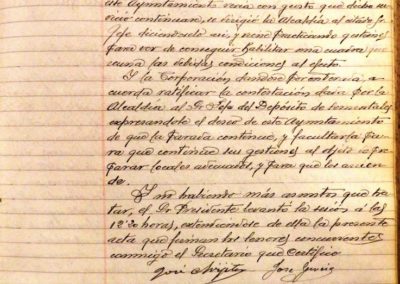 este Ayuntamiento vería con gusto que dicho ser-
vicio continuara, se dirigió la Alcaldía al citado Sr.
Jefe diciéndoselo así, y viene practicando gestiones
para ver de conseguir habilitar una cuadra que
reuna las debidas condiciones al efecto.
Y la Corporación dándose por enterada, a-
cuerda ratificar la contestación dada por la
Alcaldía al Sr. Jefe del Depósito de Sementales
expresandole el deseo de este Ayuntamiento
de que la Parada continue, y facultarla pa-
ra que continúe sus gestiones al objeto de pre-
parar locales adecuados, y para que los arrien-
de.
Y no habiendo más asuntos que tra-
tar, el Sr. Presidente levantó la sesión á las
12'30 horas, extendiéndose de ella la presente
acta que firman los señores concurrentes
conmigo el Secretario que certifico.
José José García